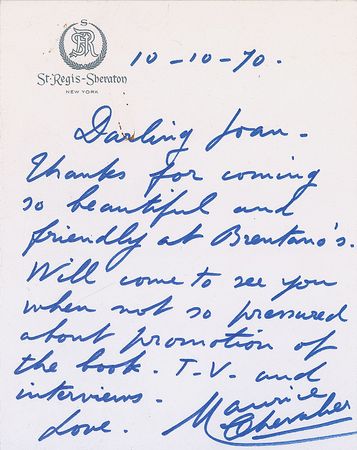 S
SR
St. Regis-Sheraton
NEW YORK
10-10-70.
Darling Joan -
Thanks for coming
so beautiful and
friendly at Brentano's.
Will come to see you
when not so pressured
about promotion of
the book. T.V. and
interviews.
Love. Maurice
Chevalier